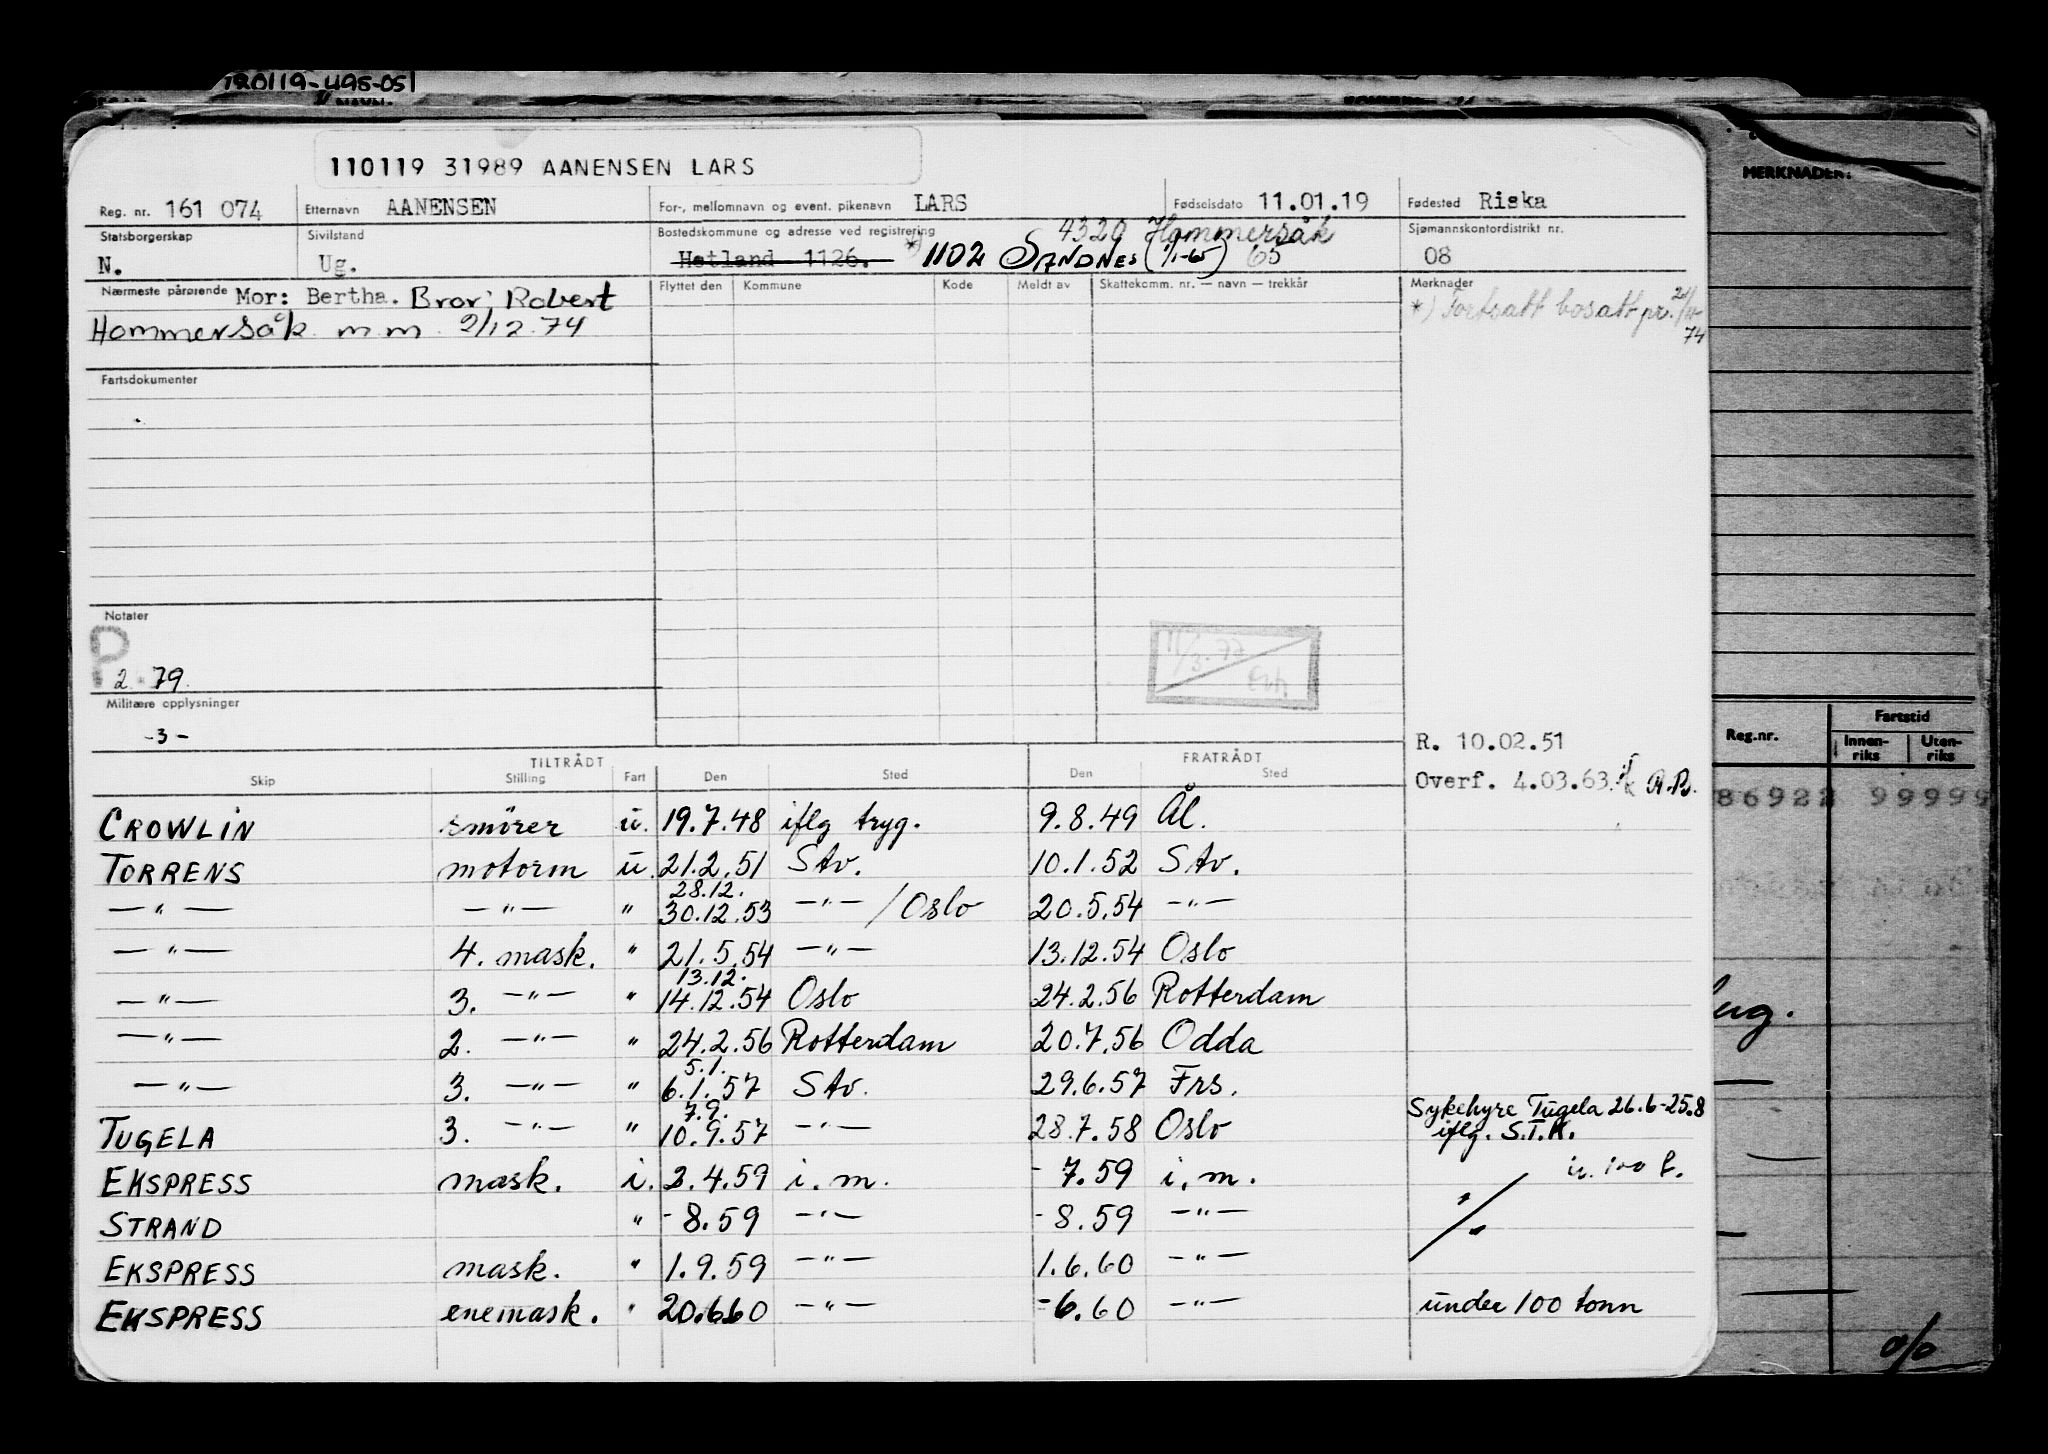 110119 31989 AANENSEN LARS
Reg. nr. 161 074 Etternavn AANENSEN For-, mellomnavn og event. pikenavn LARS Fødselsdato 11.01.19 Fødested Riska
Statsborgerskap Sivilstand Bostedskommune og adresse ved registrering 4320 Hommersåk Sjømannskontordistrikt nr.
N. Ug. Hetland 1126. *) 1102 SANDNES (1/1-65) 65 08
Nærmeste pårørende Mor: Bertha. Bror: Robert Flyttet den Kommune Kode Meldt av Skattekomm. nr. — navn — trekkår Merknader
Hommersåk m.m. 2/12.74 *) Fortsatt bosatt pr.
74
Fartsdokumenter
Notater
P
2.-79.
Militære opplysninger
-3-
11/3.77
R. 10.02.51
Overf. 4.03.63. R.Ps.
TILTRÅDT FRATRÅDT
Skip Stilling Fart Den Sted Den Sted
CROWLIN smörer u. 19.7.48 iflg tryg. 9.8.49 Ål.
TORRENS motorm u. 21.2.51 Stv. 10.1.52 Stv.
28.12.
—"— —"— " 30.12.53 —"— / Oslo 20.5.54 —"—
—"— 4. mask. " 21.5.54 —"— 13.12.54 Oslo
13.12.
—"— 3. —"— " 14.12.54 Oslo 24.2.56 Rotterdam
—"— 2. —"— " 24.2.56 Rotterdam 20.7.56 Odda
5.1.
—"— 3. —"— " 6.1.57 Stv. 29.6.57 Frs.
7.9. Sykehyre Tugela 26.6-25.8
TUGELA 3. —"— " 10.9.57 —"— 28.7.58 Oslo iflg. S.T.K.
EKSPRESS mask. i. 2.4.59 i.m. - 7.59 i.m.
STRAND " - 8.59 —"— - 8.59 —"— "
EKSPRESS mask. " 1.9.59 —"— 1.6.60 —"—
EKSPRESS enemask. " 20.6.60 —"— - 6.60 —"— under 100 tonn
MERKNADER:
Reg.nr. Fartstid
Innen-riks Uten-riks
99999
%